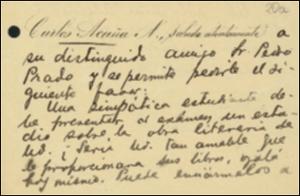 Carlos Acuña N., saluda atentamente a
su distinguido amigo Sr. Pedro
Prado y se permite pedirle el si-
guiente favor:
Una simpática estudiante de-
be presentar al exámen, un estu-
dio sobre la obra literaria de
Ud. ¿Sería Ud. tan amable que
le proporcionara sus libros, ojalá
hoy mismo. Puede enviármelos a